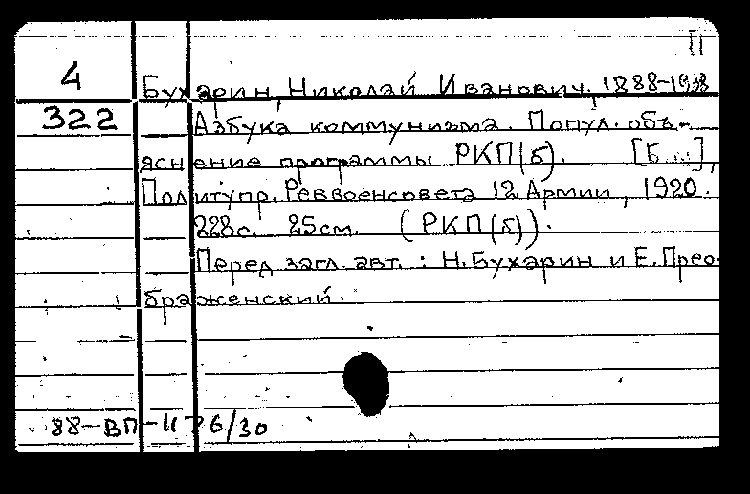 П
4
Бухарин, Николай Иванович, 1888-1938
322
Азбука коммунизма. Попул. объ-
яснение программы РКП(б). [Б.м.],
Политупр. Реввоенсовета 12 Армии, 1920.
228с. 25см. (РКП(б)).
Перед загл. авт.: Н.Бухарин и Е.Прео-
браженский.
88-ВП-4176/30